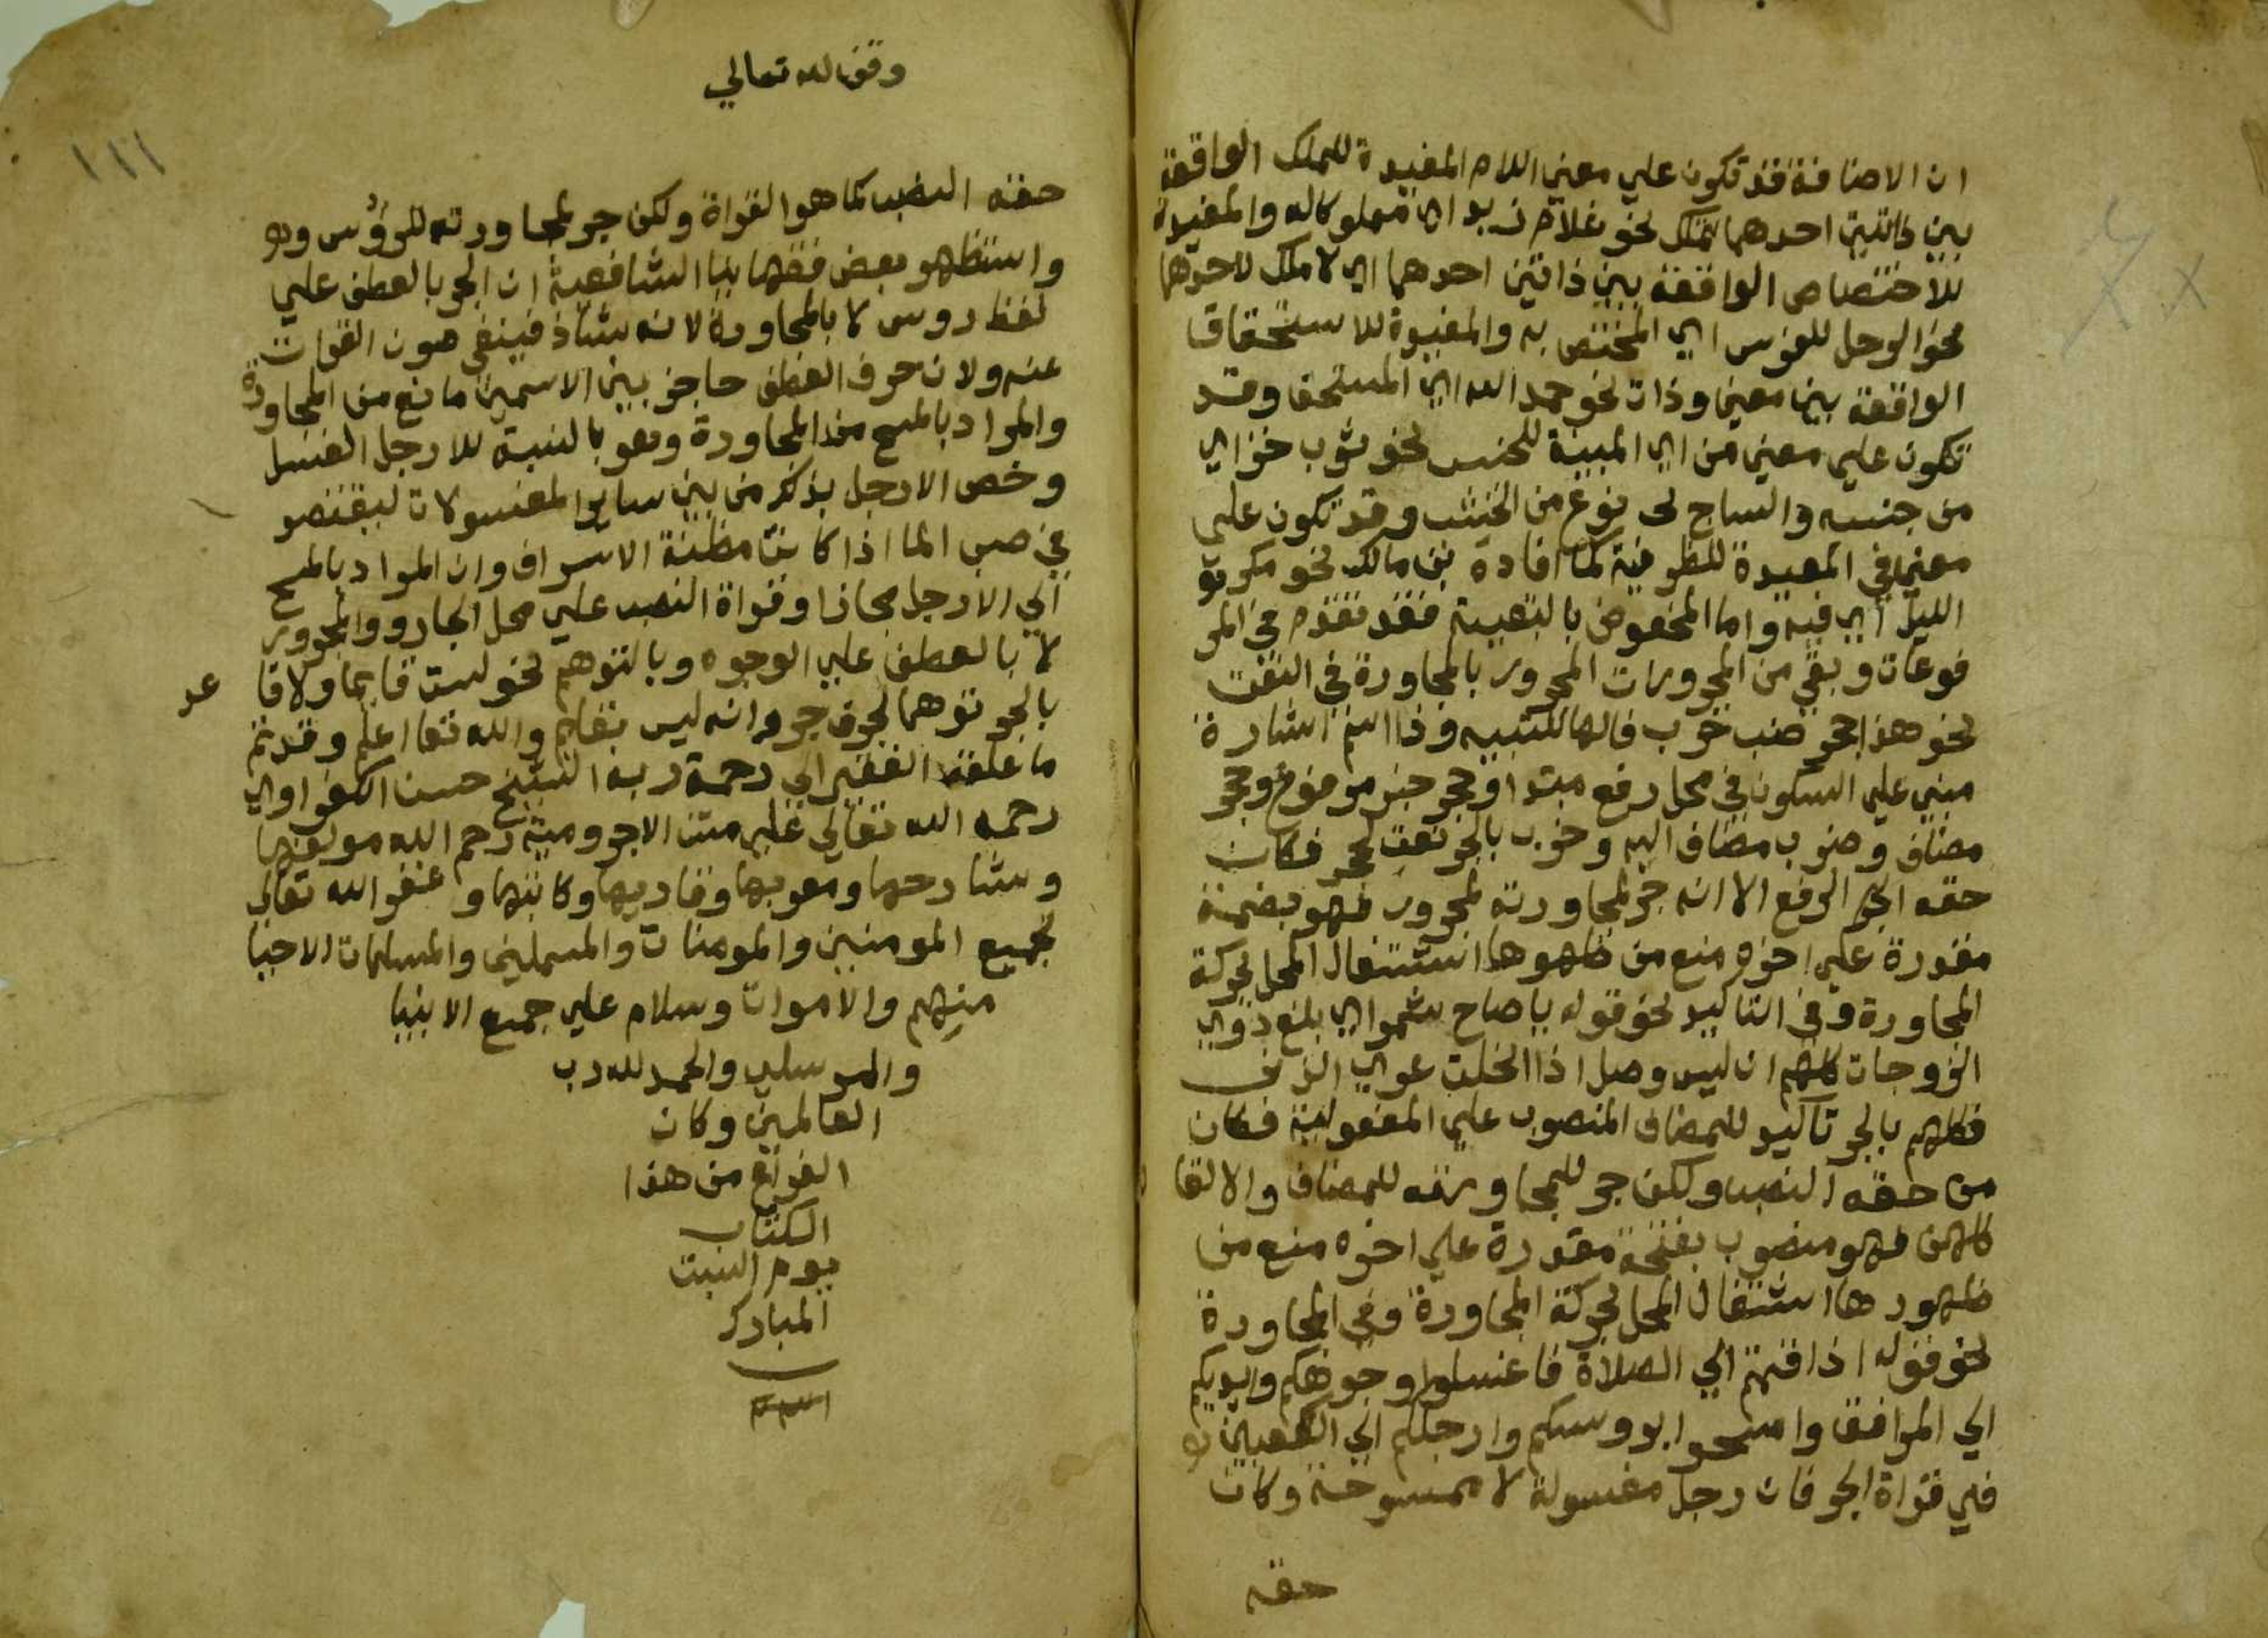 ان الاضافة قد تكون علي معني اللام المفيدة للملك الواقعة
بين ذاتين احدهما تملك نحو غلام زيد اي مملوكا له والمفيدة
للاختصاص الواقعة بين ذاتين احدهما اي لا ملك لاحدهما
نحو الرحل للفرس اي المختص به والمفيدة للاستحقاق
الواقعة بين معني وذات نحو حمد الله اي المستحق وقد
تكون علي معني من اي المبينة للجنس نحو ثوب خز اي
من جنسه والساج اي نوع من الخشب وقد تكون علي
معني في المفيدة للظرفية كما افاده بن مالك نحو مكر
الليل اي فيه واما المخفوض بالتبعية فقد تقدم في المر
فوعات وبقي من المجرورات المجرور بالمجاورة في النعت
نحو هذا جحر ضب خرب فالها للتنبيه وذا اسم اشارة
مبني علي السكون في محل رفع مبتدا وجحر خبر مرفوع وجحر
مضاف وضب مضاف اليه وخرب بالجر نعت لجحر فكان
حقه الرفع الا انه جر لمجاورته لمجرور فهو بضمة
مقدرة علي اخره منع من ظهورها اشتغال المحل بحركة
المجاورة وفي التاكيد نحو قوله يا صاح بلغ ذوي
الزوجات كلهم ان ليس وصل اذا انحلت عري الذنب
فكلهم بالجر تاكيد للمضاف المنصوب علي المفعولية فكان
من حقه النصب ولكن جر للمجاورته للمضاف والا لقا
كلهن فهو منصوب بفتحة مقدرة علي اخره منع من
ظهورها اشتغال المحل بحركة المجاورة وفي المجاورة
نحو قوله اذا قمتم الي الصلاة فاغسلوا وجوهكم وايديكم
الي المرافق وامسحوا بروسكم وارجلكم الي الكعبين
في قراة الجر فان رجل مغسولة لا ممسوحة وكان
حقه
وقف لله تعالي
١١١
حقه النصب كما هو القراة ولكن جر لمجاورته للرؤس
واستظهر بعض فقهائنا الشافعية ان الجر بالعطف علي
لفظ روس لا بالمجاورة لانه شاذ فينبغي صون القرات
عنه ولان حرف العطف حاجز بين الاسمين مانع من المجاورة
والمراد بالمسح من المجاورة وهو بالنسبة للارجل الغسل
وخص الارجل بذكر من بين ساير المغسولات ليقتصر
في صب الما اذا كانت مظنة الاسراف وان المراد بالمسح
الي الارجل مجازا وقراة النصب علي محل الجار والمجرور
لا بالعطف علي الوجوه وبالتوهم نحو لست قايما ولا قا عد
بالجر توهما لحرف جر وانه ليس بقايم والله تعا اعلم وقد تم
ما علقه الفقير الي رحمة ربه الشيخ حسن الكفراوي
رحمه الله تعالي علي متن الاجرومية رحم الله مولفها
وشارحها ومعربها وقاريها وكاتبها و غفر الله تعالي
لجميع المومنين والمومنات والمسلمين والمسلمات الاحيا
منهم والاموات وسلام علي جميع الانبيا
والمرسلين والحمد لله رب
العالمين وكان
الفراغ من هذا
الكتاب
يوم السبت
المبارك